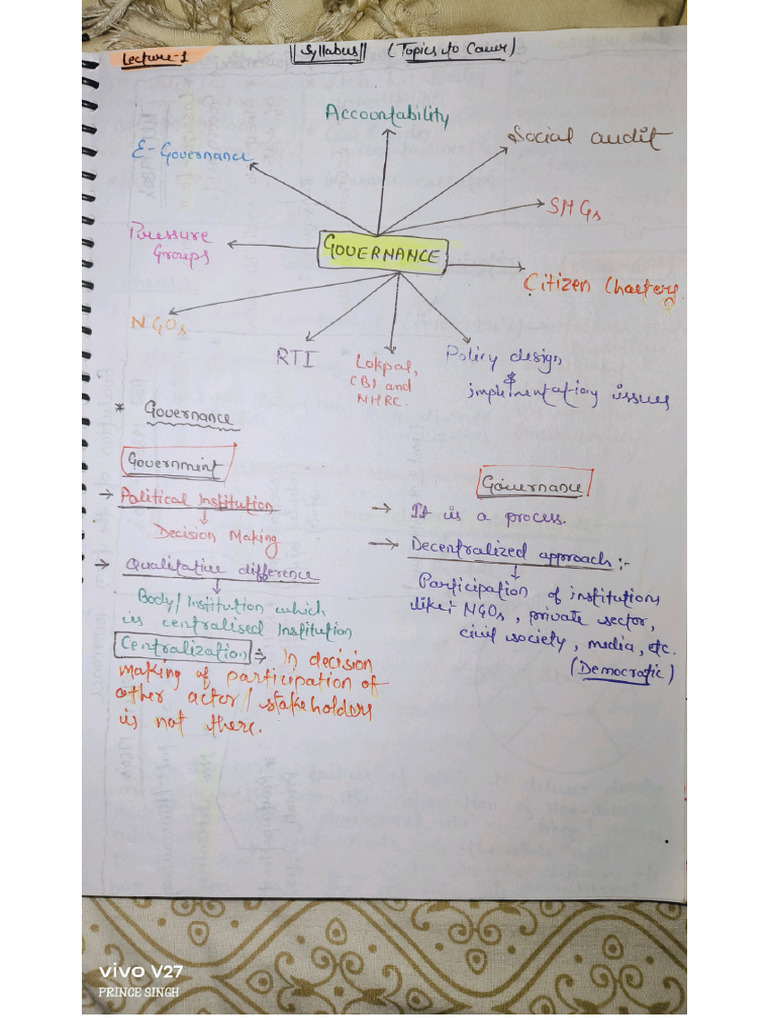 Lecture-1
Syllabus (Topics to Cover)
Accountability
E-Governance
Social audit
SHGs
Pressure
Groups
GOVERNANCE
Citizen Charters
NGOs
RTI
Lokpal,
CBI and
NHRC.
Policy design
&
implementatiory issues
* Governance
Government
→ Political Institution
Decision Making
→ Qualitative difference
Body/Institution which
is centralised Institution
Centralization ⇒ In decision
making of participation of
other actor/stakeholders
is not there.
Governance
→ It is a process.
→ Decentralized approach:-
Participation of institutions
like: NGOs, private sector,
civil society, media, etc.
(Democratic)
vivo V27
PRINCE SINGH